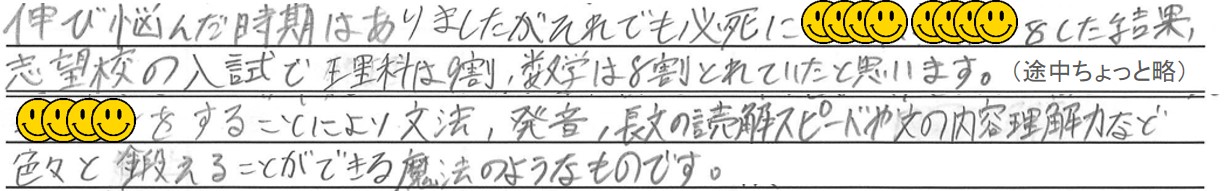 伸び悩んだ時期はありましたがそれでも必死に をした結果,
志望校の入試で理科は9割,数学は8割とれていたと思います。(途中ちょっと略)
をすることにより文法,発音,長文の読解スピードや文の内容理解力など
色々と鍛えることができる魔法のようなものです。